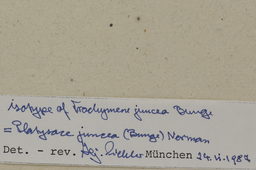 isotype of Trachymene juncea Bunge
= Platysace juncea (Bunge) Norman
Det. - rev. München 24.VI.1987